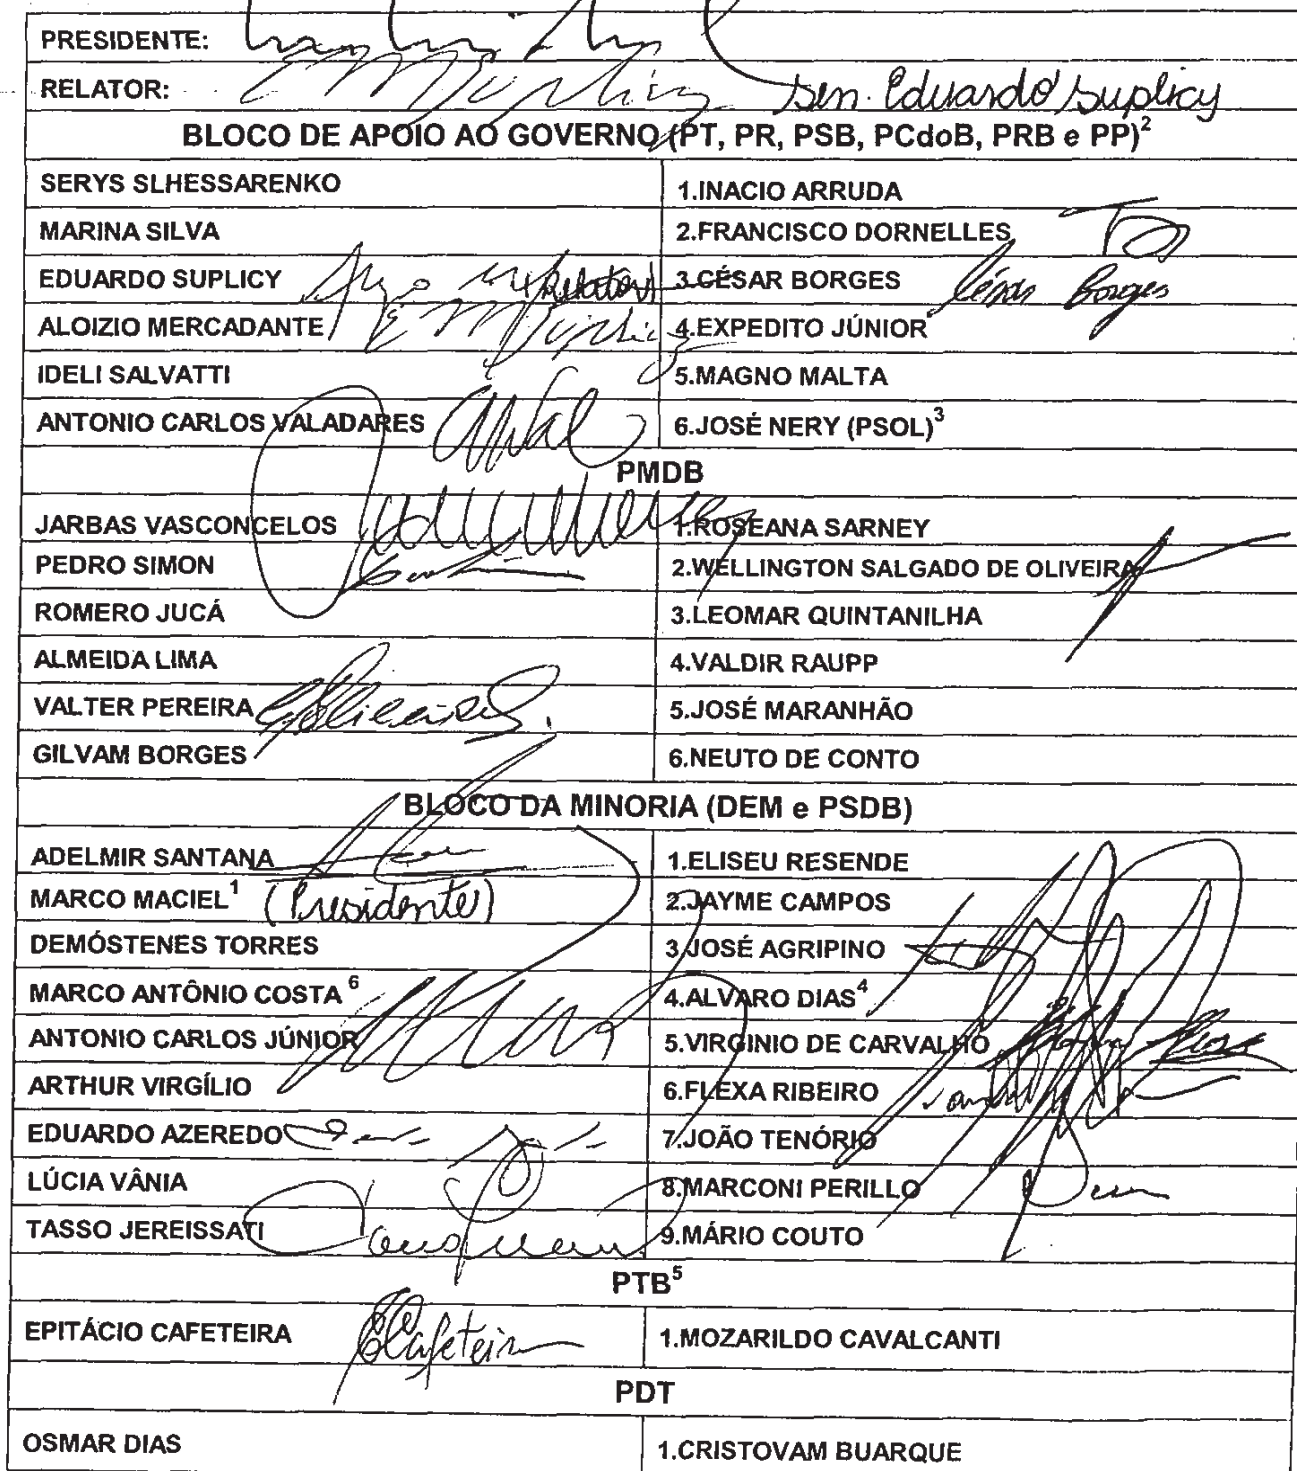 PRESIDENTE:
RELATOR: Sen. Eduardo Suplicy
BLOCO DE APOIO AO GOVERNO (PT, PR, PSB, PCdoB, PRB e PP)²
SERYS SLHESSARENKO 1.INACIO ARRUDA
MARINA SILVA 2.FRANCISCO DORNELLES
EDUARDO SUPLICY (Relator) 3.CÉSAR BORGES César Borges
ALOIZIO MERCADANTE 4.EXPEDITO JÚNIOR
IDELI SALVATTI 5.MAGNO MALTA
ANTONIO CARLOS VALADARES 6.JOSÉ NERY (PSOL)³
PMDB
JARBAS VASCONCELOS 1.ROSEANA SARNEY
PEDRO SIMON 2.WELLINGTON SALGADO DE OLIVEIRA
ROMERO JUCÁ 3.LEOMAR QUINTANILHA
ALMEIDA LIMA 4.VALDIR RAUPP
VALTER PEREIRA 5.JOSÉ MARANHÃO
GILVAM BORGES 6.NEUTO DE CONTO
BLOCO DA MINORIA (DEM e PSDB)
ADELMIR SANTANA 1.ELISEU RESENDE
MARCO MACIEL¹ (Presidente) 2.JAYME CAMPOS
DEMÓSTENES TORRES 3.JOSÉ AGRIPINO
MARCO ANTÔNIO COSTA⁶ 4.ALVARO DIAS⁴
ANTONIO CARLOS JÚNIOR 5.VIRGINIO DE CARVALHO
ARTHUR VIRGÍLIO 6.FLEXA RIBEIRO
EDUARDO AZEREDO 7.JOÃO TENÓRIO
LÚCIA VÂNIA 8.MARCONI PERILLO
TASSO JEREISSATI 9.MÁRIO COUTO
PTB⁵
EPITÁCIO CAFETEIRA Cafeteira 1.MOZARILDO CAVALCANTI
PDT
OSMAR DIAS 1.CRISTOVAM BUARQUE